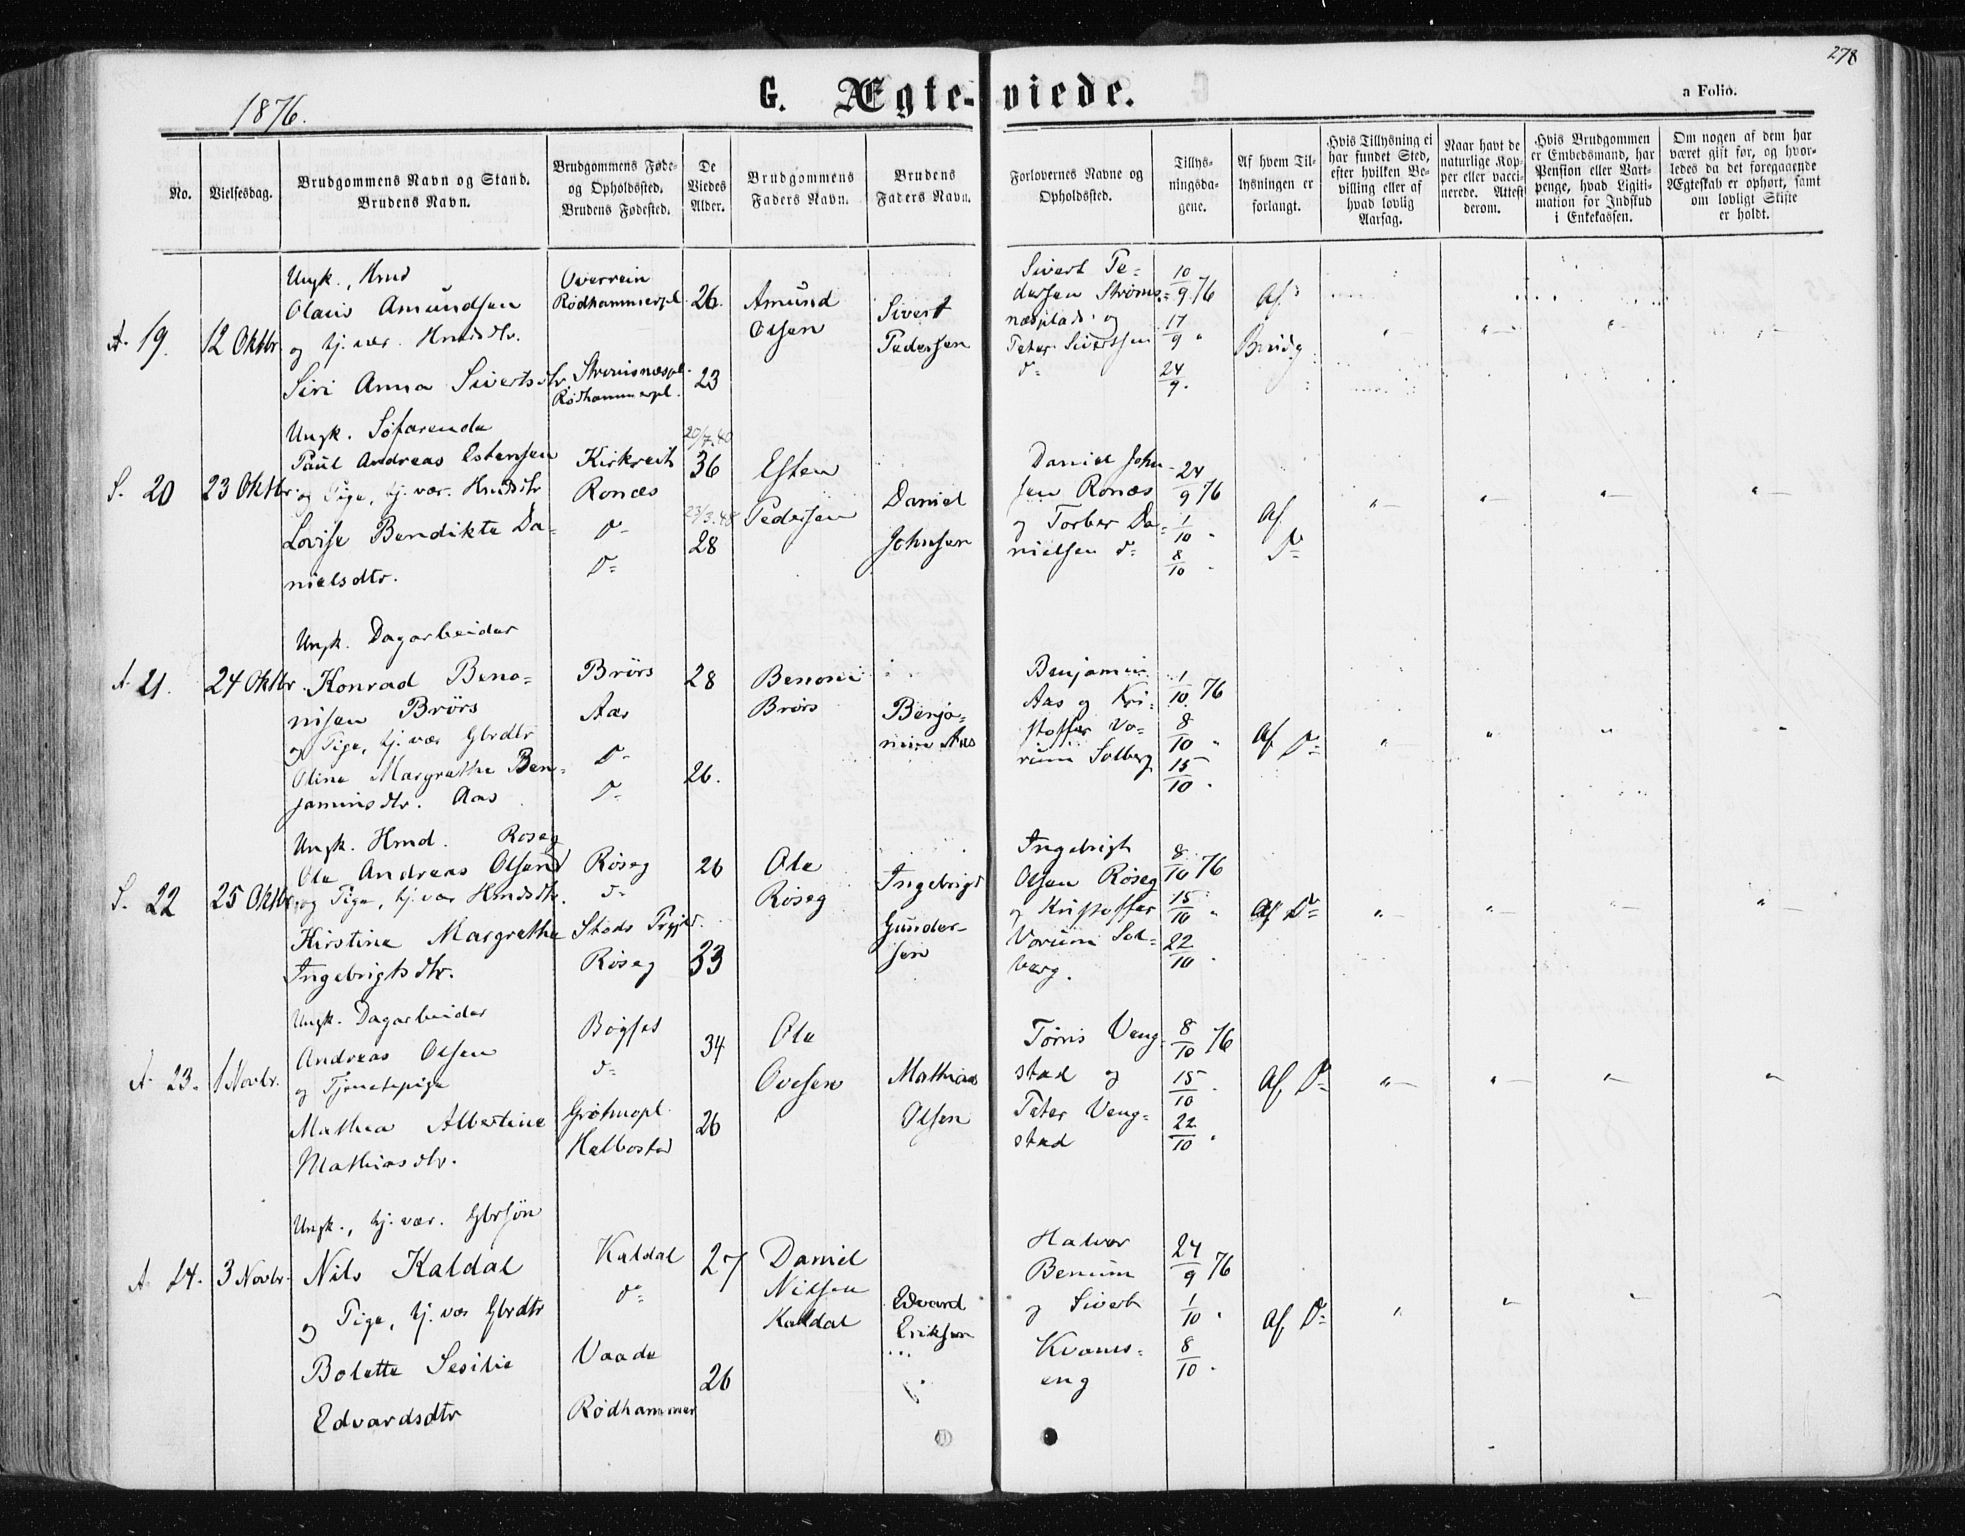 278
1876.
G. Ægte-viede.
a Folio.
No.
Vielsesdag.
Brudgommens Navn og Stand.
Brudens Navn.
Brudgommens Føde-
og Opholdssted.
Brudens Fødested.
De
Viedes
Alder.
Brudgommens
Faders Navn.
Brudens
Faders Navn.
Forlovernes Navne og
Opholdssted.
Tillys-
ningsda-
gene.
Af hvem Til-
lysningen er
forlangt.
Hvis Tillysning ei
har fundet Sted,
efter hvilken Be-
villing eller af
hvad lovlig
Aarsag.
Naar havt de
naturlige Kop-
per eller vacci-
nerede. Attest
derom.
Hvis Brudgommen
er Embedsmand, har
Pension eller Vart-
penge, hvad Ligiti-
mation for Indskud
i Enkekassen.
Om nogen af dem har
været gift før, og hvor-
ledes da det foregaaende
Ægteskab er ophørt, samt
om lovligt Skifte
er holdt.
A. 19.
12 Oktbr.
Ungk., Hmd
Olaus Amundsen
og hj. vær. Hmdsdtr.
Siri Anna Sivertsdtr.
Overrein
Rødhammerpl.
Strømsnæspl.
Rødhammerpl.
26.
23
Amund
Olsen
Sivert
Pedersen
Sivert Pe-
dersen Strøms-
næsplads og
Peter Sivertsen
d=
10/9 76
17/9 "
24/9.
Af
Brudg
S. 20
23 Oktbr.
Ungk. Søfarende
Paul Andreas Estensen
og Pige, hj. vær. Hmdsdtr
Lovise Bendikte Da-
nielsdtr.
Ronæs
d=
d=
20/7.40
36
23/3.48
28
Esten
Pedersen
Daniel
Johnsen
Daniel John-
sen Ronæs
og Torber Da-
nielsen d=
24/9 76
1/10 "
8/10 "
Af
d=
A. 21.
24 Oktbr.
Ungk. Dagarbeider
Konrad Beno-
nisen Brørs
og Pige, hj. vær Gbrdtr
Oline Margrethe Ben-
jaminsdtr. Aas
Brørs
Aas
d=
d=
28
26.
Benoni
Brørs
Benja-
min Aas
Benjamin
Aas og Kri-
stoffer Vo-
rum Solberg
1/10 76
8/10 "
15/10 "
Af d=
S. 22
25 Oktbr.
Ungk. Hmd. Røseg
Ole Andreas Olsen
og Pige, hj. vær Hmdsdtr.
Kirstine Margrethe
Ingebrigtsdtr.
Røseg
d=
Stods Prgjld.
Røseg
26
33
Ole
Røseg
Ingebrigt
Gunder-
sen
Ingebrigt
Olsen Røseg
og Kristoffer
Vorum Sol-
berg.
8/10 76
15/10 "
22/10 "
Af d=
A. 23.
1 Novbr.
Ungk. Dagarbeider
Andreas Olsen
og Tjenestepige
Mathea Albertine
Mathiasdtr.
d=
Helbostad
34
26
Ole
Ovesen
Mathias
Olsen
Tøris Veng-
stad og
Peter Veng-
stad
8/10 76
15/10 "
22/10 "
Af d=
A. 24.
3 Novbr.
Ungk., hj. vær. Gbrsøn
Nils Kaldal
og Pige, hj. vær Gbrdtr
Bolette Sesilie
Edvardsdtr
Kaldal
d=
Vaade
Rødhammer
27
26
Daniel
Nilsen
Kaldal
Edvard
Eriksen
Halvor
Benum
og Sivert
Kvams-
eng
24/9 76
1/10 "
8/10 "
Af d=